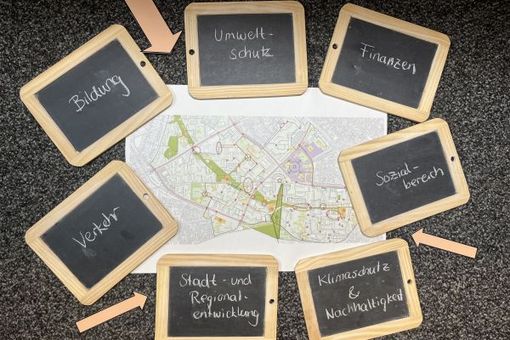 Umwelt-
schutz
Finanzen
Bildung
Sozial-
bereich
Verkehr
Stadt- und
Regional-
entwicklung
Klimaschutz
&
Nachhaltigkeit